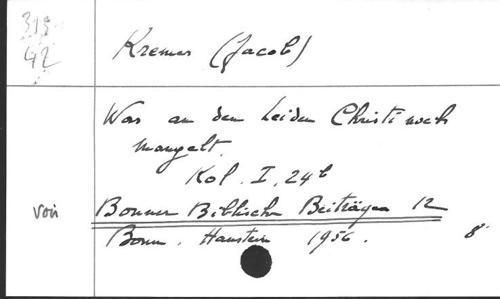 319
42
Kremer (Jacob)
Was an den Leiden Christi noch
mangelt.
Kol. I, 24b
Voir Bonner Biblische Beiträgen 12
Bonn. Hanstein 1956. 8°